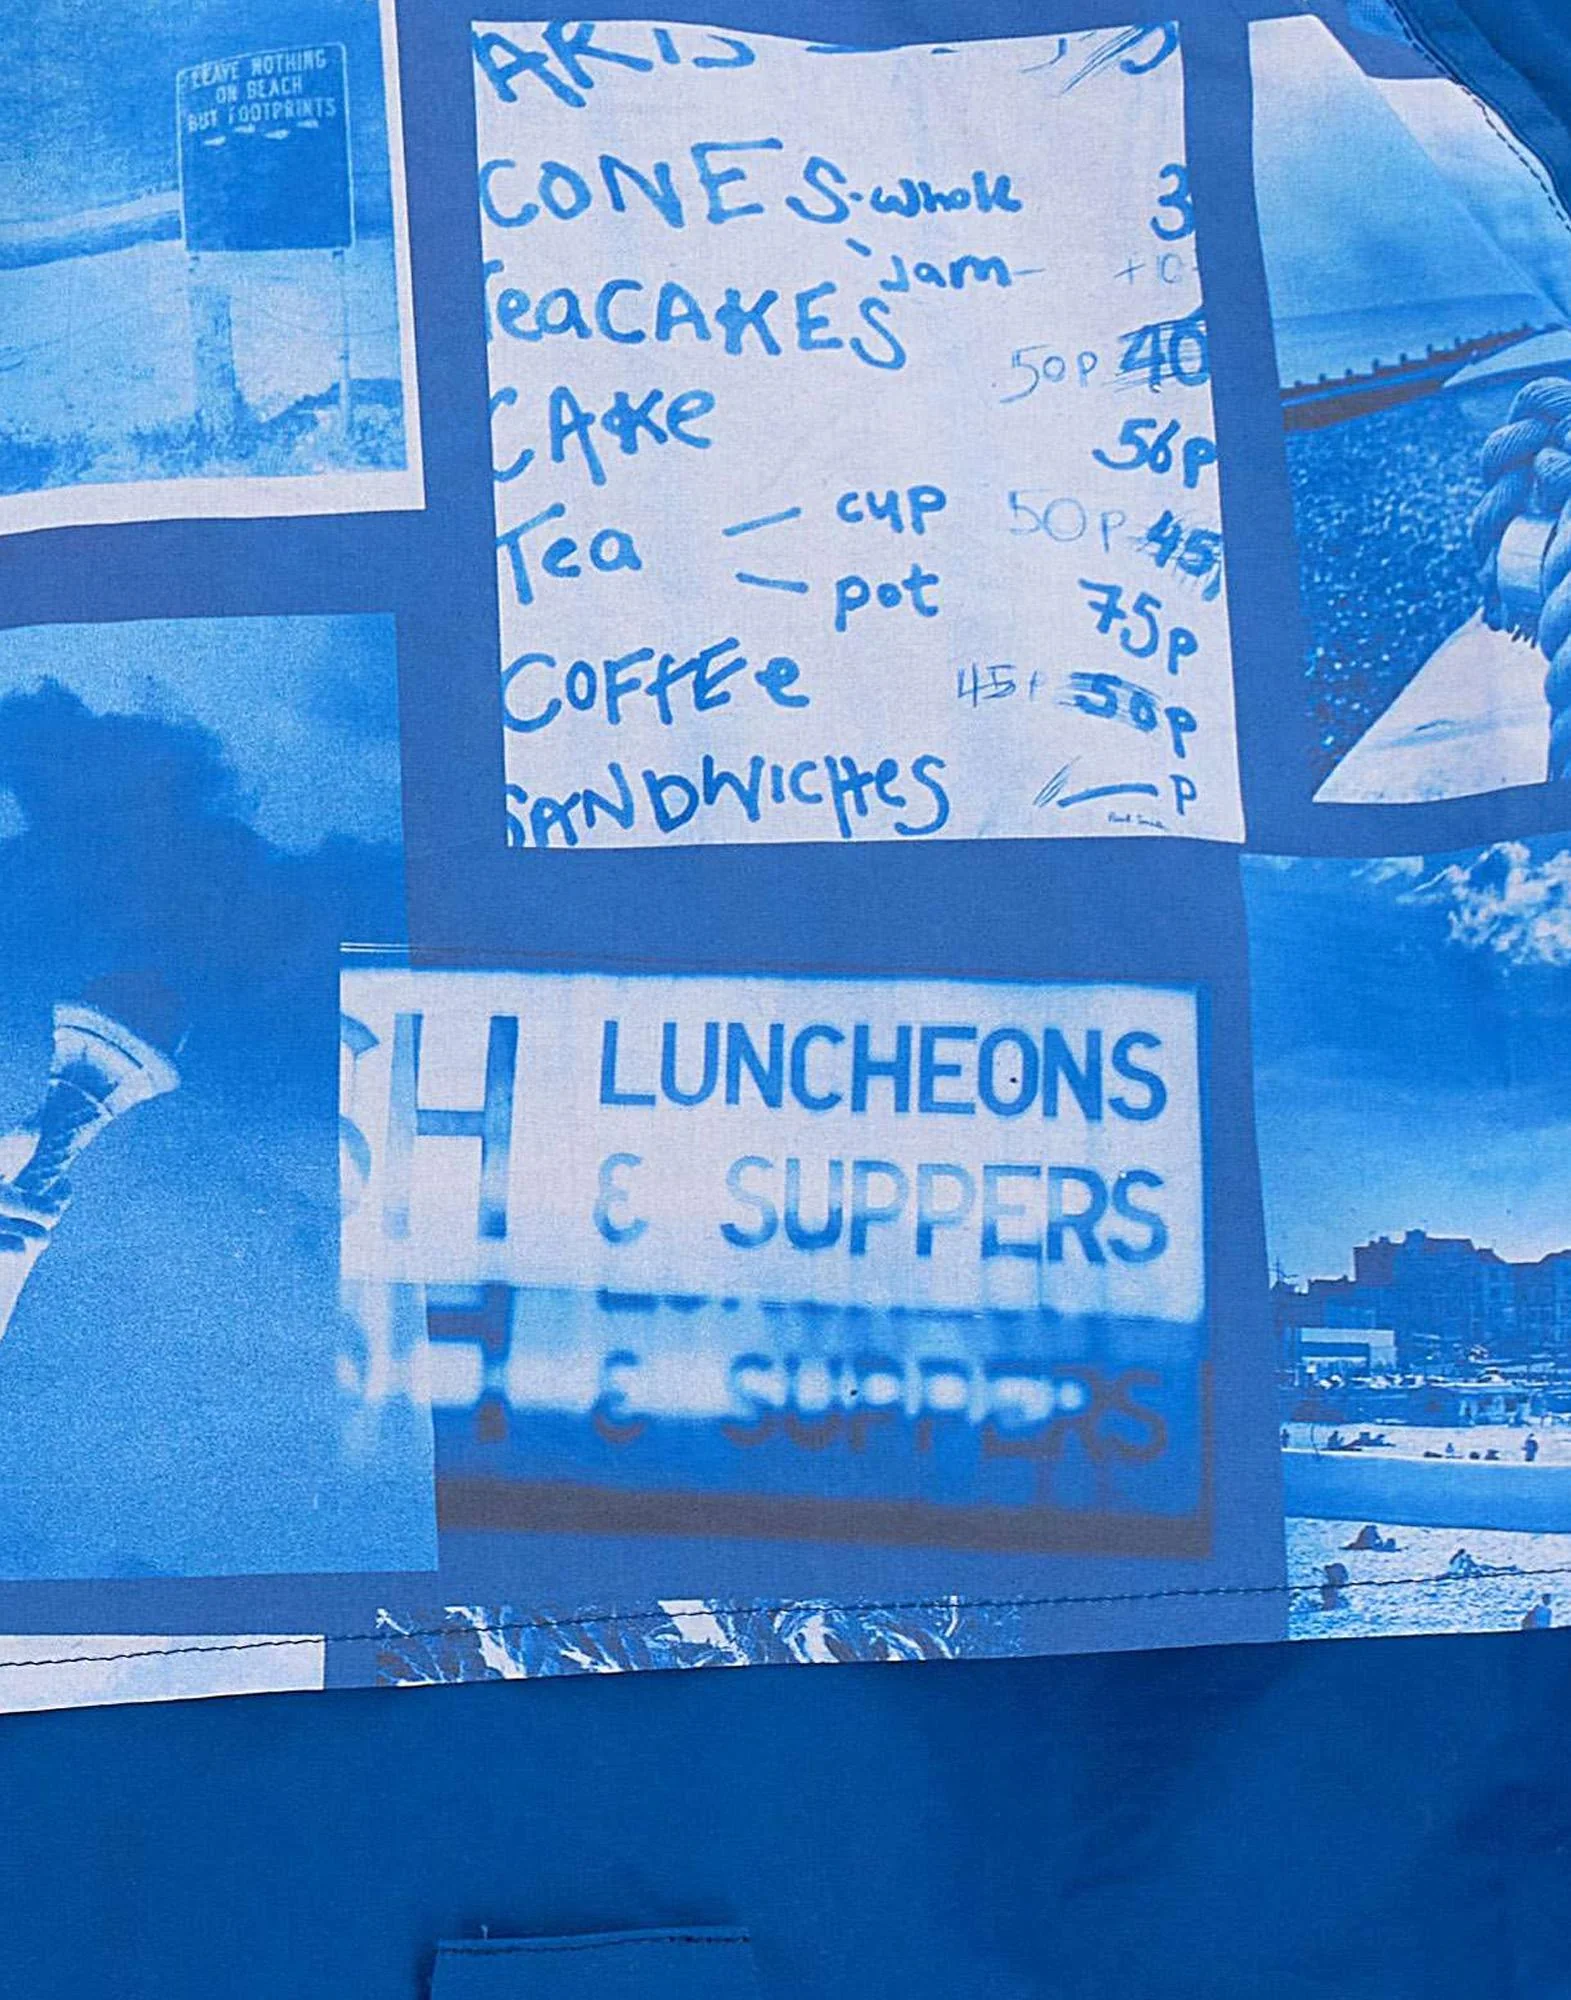 LEAVE NOTHING
ON BEACH
BUT FOOTPRINTS
CONES - whole 3
Jam +10
TeaCAKES 50p 40
CAKe 56p
Tea cup 50p 45
pot 75p
COFFEe 45p 50p
SANDWICHes p
Paul Smith
H LUNCHEONS
& SUPPERS
& SUPPERS